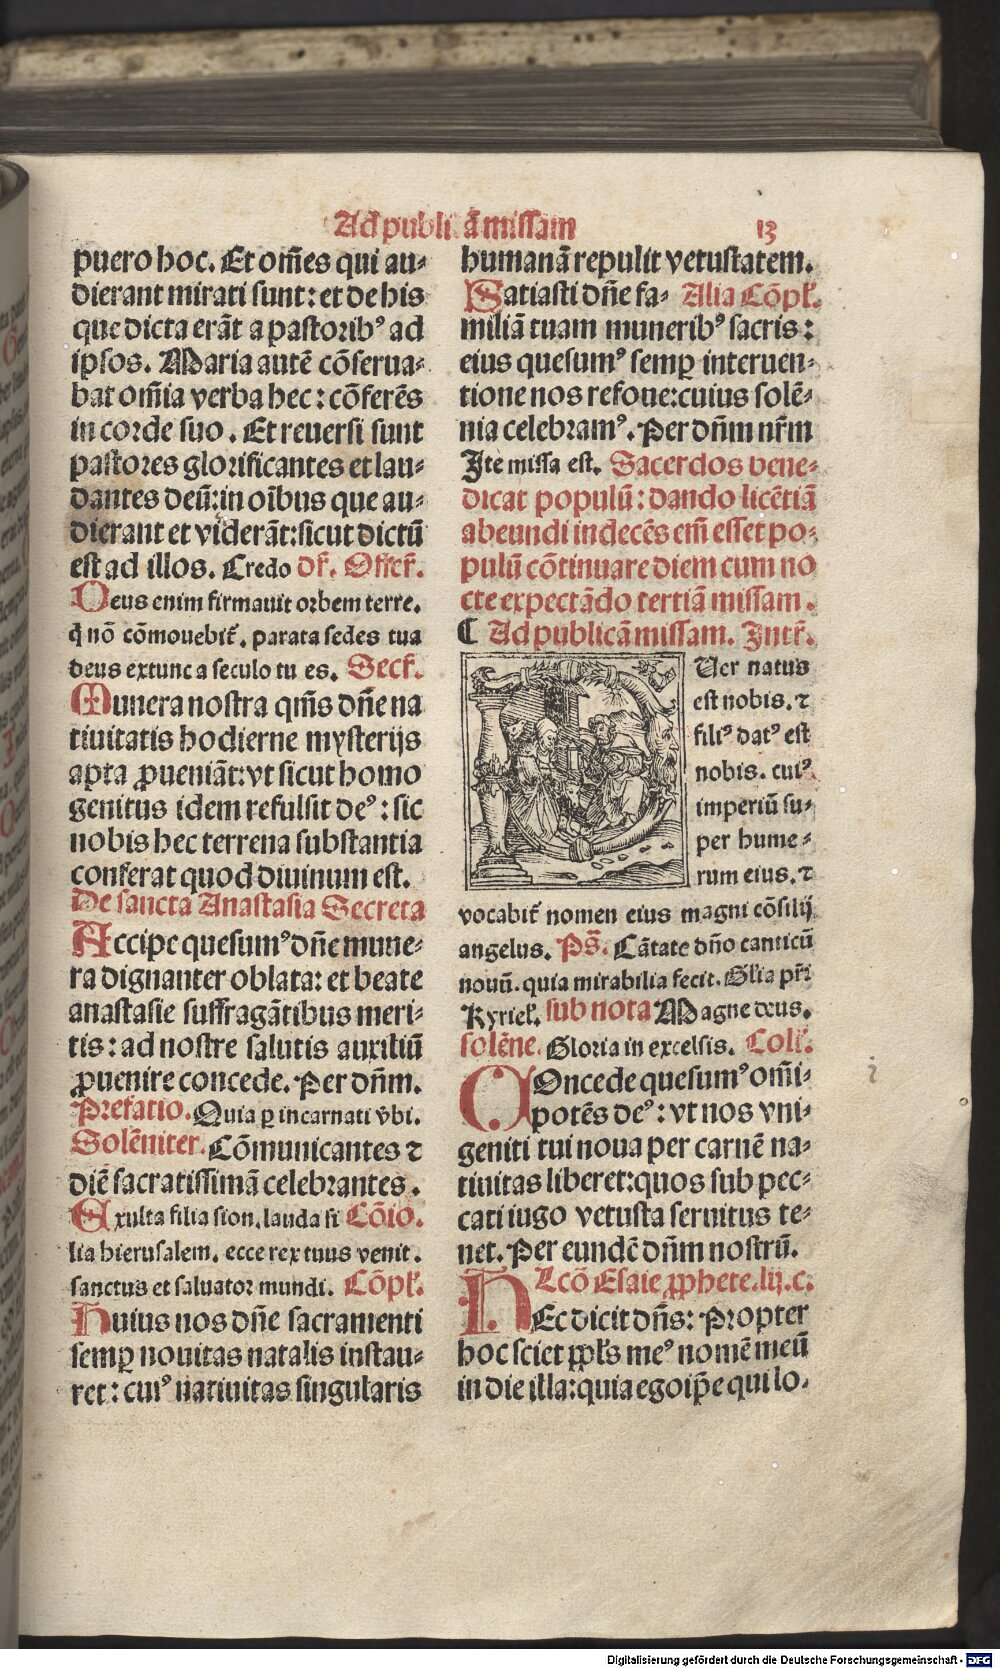 Ad publicā missam 13
puero hoc. Et om̄es qui au-
dierant mirati sunt: et de his
que dicta erāt a pastorib⁹ ad
ipsos. Maria autē cōserua-
bat om̄ia verba hec: cōferēs
in corde suo. Et reuersi sunt
pastores glorificantes et lau-
dantes deū: in oībus que au-
dierant et viderāt: sicut dictū
est ad illos. Credo dn̄. Offer̄.
Deus enim firmauit orbem terre.
q̄ nō cōmouebit̄. parata sedes tua
deus extunc a seculo tu es. Secr̄.
Munera nostra qm̄s dn̄e na
tiuitatis hodierne mysterijs
apta ꝓueniāt: vt sicut homo
genitus idem refulsit de⁹: sic
nobis hec terrena substantia
conferat quod diuinum est.
De sancta Anastasia Secreta
Accipe quesum⁹ dn̄e mune-
ra dignanter oblata: et beate
anastasie suffragātibus meri-
tis: ad nostre salutis auxiliū
ꝓuenire concede. Per dn̄m.
Prefatio. Quia ꝑ incarnati v̄bi.
Solēniter. Cōmunicantes ⁊
diē sacratissimā celebrantes.
Exulta filia sion. lauda fi Cōio.
lia hierusalem. ecce rex tuus venit.
sanctus et saluator mundi. Cōpl̄.
Huius nos dn̄e sacramenti
semꝑ nouitas natalis instau-
ret: cui⁹ natiuitas singularis
humanā repulit vetustatem.
Satiasti dn̄e fa- Alia Cōpl̄.
miliā tuam munerib⁹ sacris:
eius quesum⁹ semꝑ interuen-
tione nos refoue: cuius solē-
nia celebram⁹. Per dn̄m nr̄m
Ite missa est. Sacerdos bene-
dicat populū: dando licētiā
abeundi indecēs em̄ esset po-
pulū cōtinuare diem cum no
cte expectādo tertiā missam.
¶ Ad publicā missam. Intr̄.
Uer natus
est nobis. ⁊
fili⁹ dat⁹ est
nobis. cui⁹
imperiū su-
per hume-
rum eius. ⁊
vocabit̄ nomen eius magni cōsilij
angelus. Ps̄. Cātate dn̄o canticū
nouū. quia mirabilia fecit. Gl̄ia pr̄i
Kyriel̄. sub nota Magne deus.
solēne. Gloria in excelsis. Coll̄.
COncede quesum⁹ om̄i-
potēs de⁹: vt nos vni-
geniti tui noua per carnē na-
tiuitas liberet: quos sub pec-
cati iugo vetusta seruitus te-
net. Per eundē dn̄m nostrū.
Lcō Esaie ꝓphete. lij. c.
HEc dicit dn̄s: Propter
hoc sciet ppl̄s me⁹ nomē meū
in die illa: quia ego ip̄e qui lo-
Digitalisierung gefördert durch die Deutsche Forschungsgemeinschaft - DFG